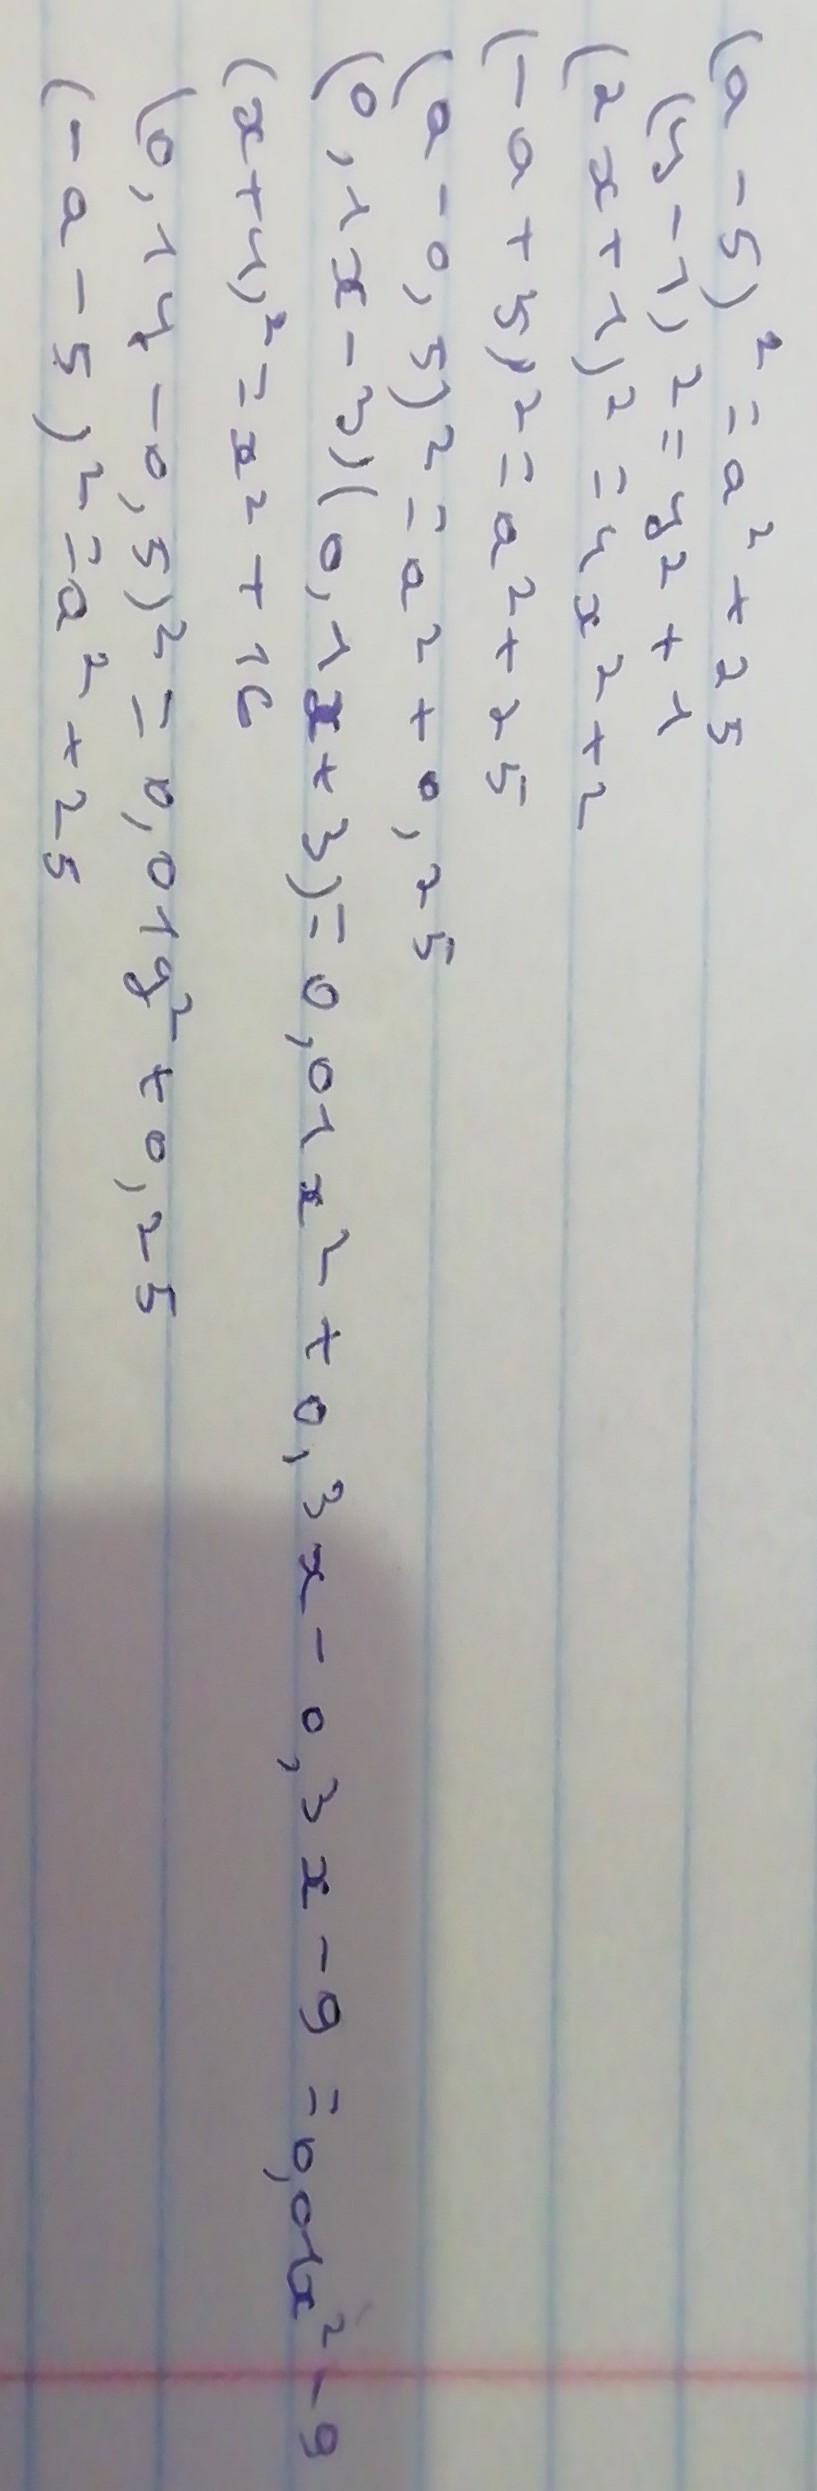 (a - 5)² = a² + 25
(y - 1)² = y² + 1
(2x + 1)² = 4x² + 2
(-a + 5)² = a² + 25
(a - 0,5)² = a² + 0,25
(0,1x - 3)(0,1x + 3) = 0,01x² + 0,3x - 0,3x - 9 = 0,01x² - 9
(x + 4)² = x² + 16
(0,1y - 0,5)² = 0,01y² + 0,25
(-a - 5)² = a² + 25